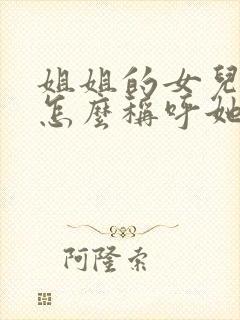 姐姐的女兒
怎麼稱呼她
阿隆索